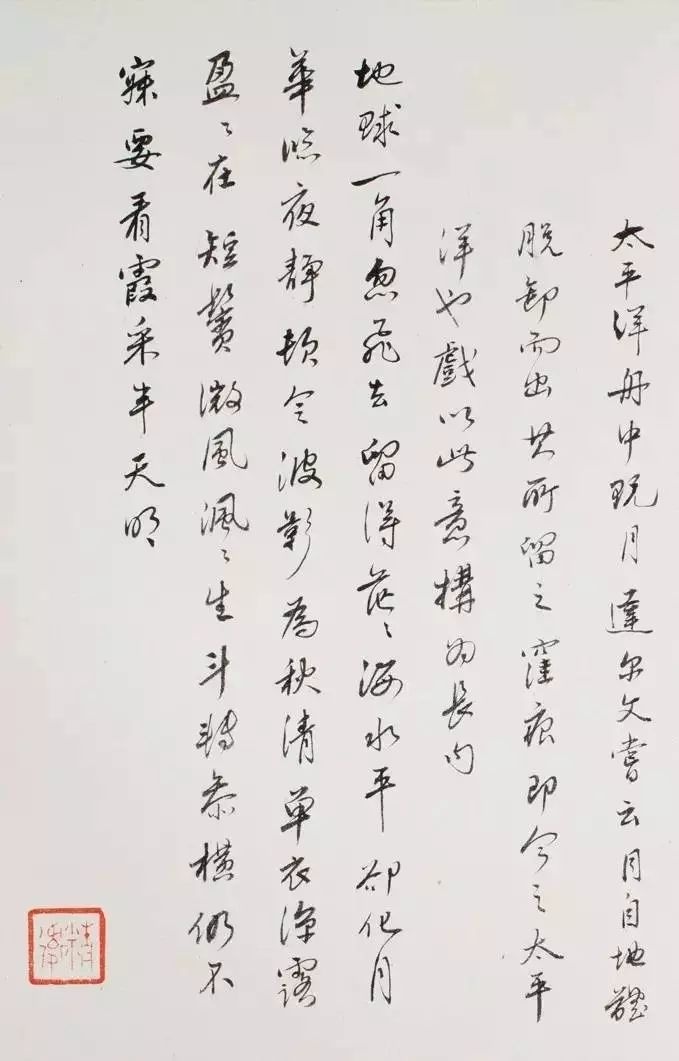 太平洋舟中玩月達尔文嘗云月自地體
脱卸而出其所留之窪痕即今之太平
洋也戲以此意構为長句
地球一角忽飛去留得茫〻海水平卻化月
華臨夜静頓令波影為秋清单衣涼露
盈〻在短鬢微風渢〻生斗轉参横仍不
寐要看霞采半天明